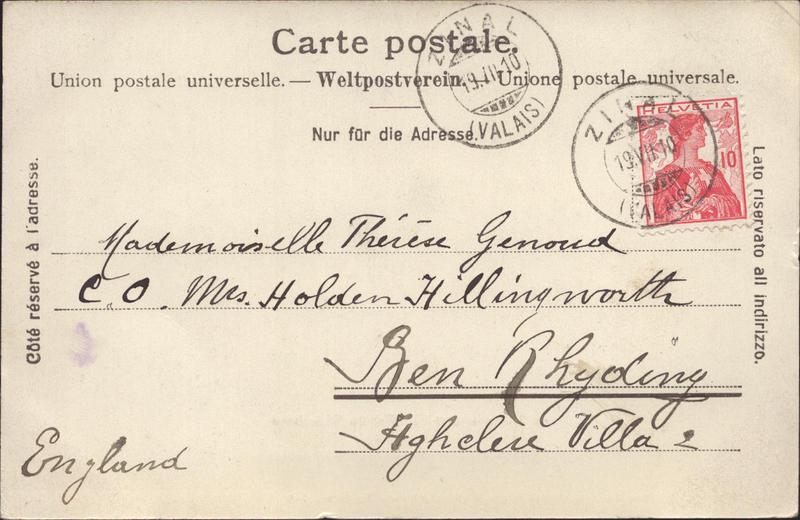 Carte postale.
Union postale universelle. — Weltpostverein. — Unione postale universale.
Nur für die Adresse.
Côté réservé à l'adresse.
Lato riservato all indirizzo.
ZINAL
19.VII.10
(VALAIS)
ZINAL
19.VII.10
(VALAIS)
HELVETIA
10
Mademoiselle Thérèse Genoud
C.O. Mrs. Holden Hillingworth
Ben Rhyding
Villa 2
England